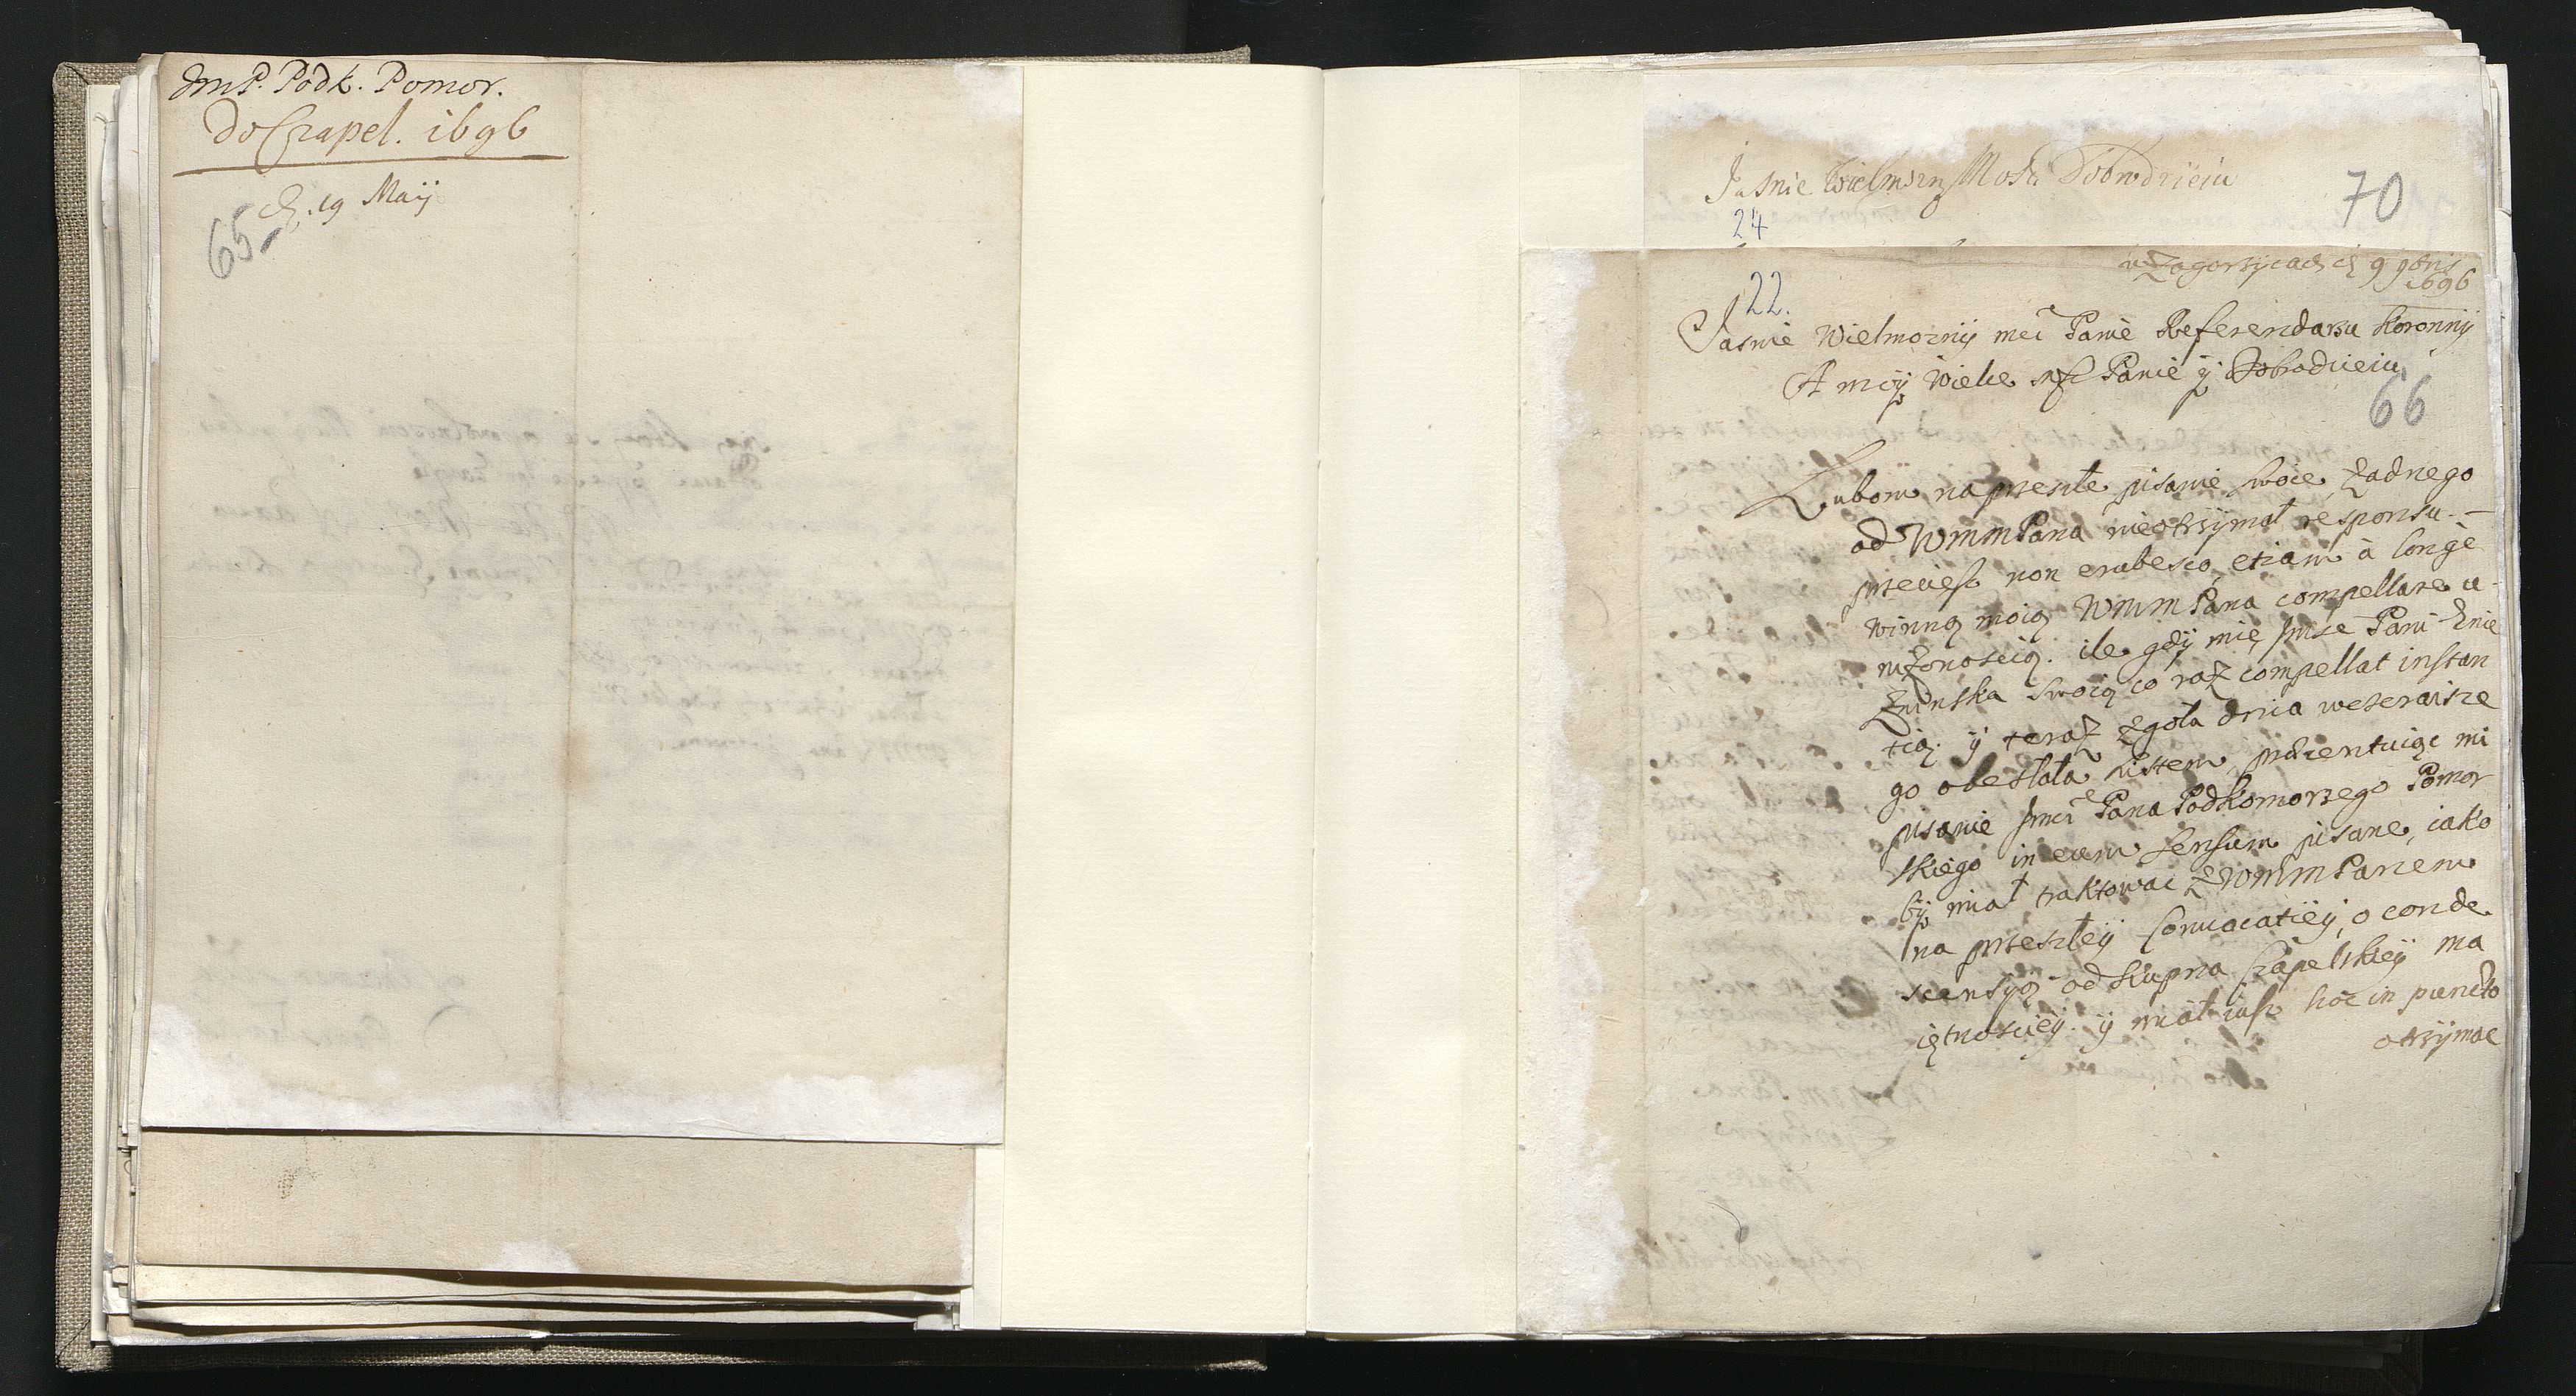 JmP. Podk. Pomor.
Do Czapel. 1696
d. 19 Maij
65
Jasnie Wielmozny Mosci Dobrodzieiu
70
24
w Zagorzycach d 9 9bris
1696
22.
Jasnie Wielmoznij mci Panie Referendarzu Koronnij
A moÿ Wielce mSci Panie ÿ Dobrodzieiu
66
Lubom na przeszłe pisanie swoie, Zadnego
od WmmPana nie otrzÿmał responsu. —
przecięsz non erubesco, etiam à longè
winną moią WmmPana compellare u-
niżonoscią. ile gdÿ mię Jmsc Pani Znie
Zninska swoią co raz compellat instan
tią. ÿ teraz zgoła dnia wczeraisze
go obesłała listem, prezentuiąc mi
pisanie Jmci Pana Podkomorzego Pomor
skiego in eum sensum pisane, iako
bÿ miał traktowac z WmmPanem
na przeszłeÿ Convocatieÿ, o conde
scensÿą od Kupna Czapelskieÿ ma
iętnoscieÿ. ÿ miał iusz hoc in puncto
otrzÿmac